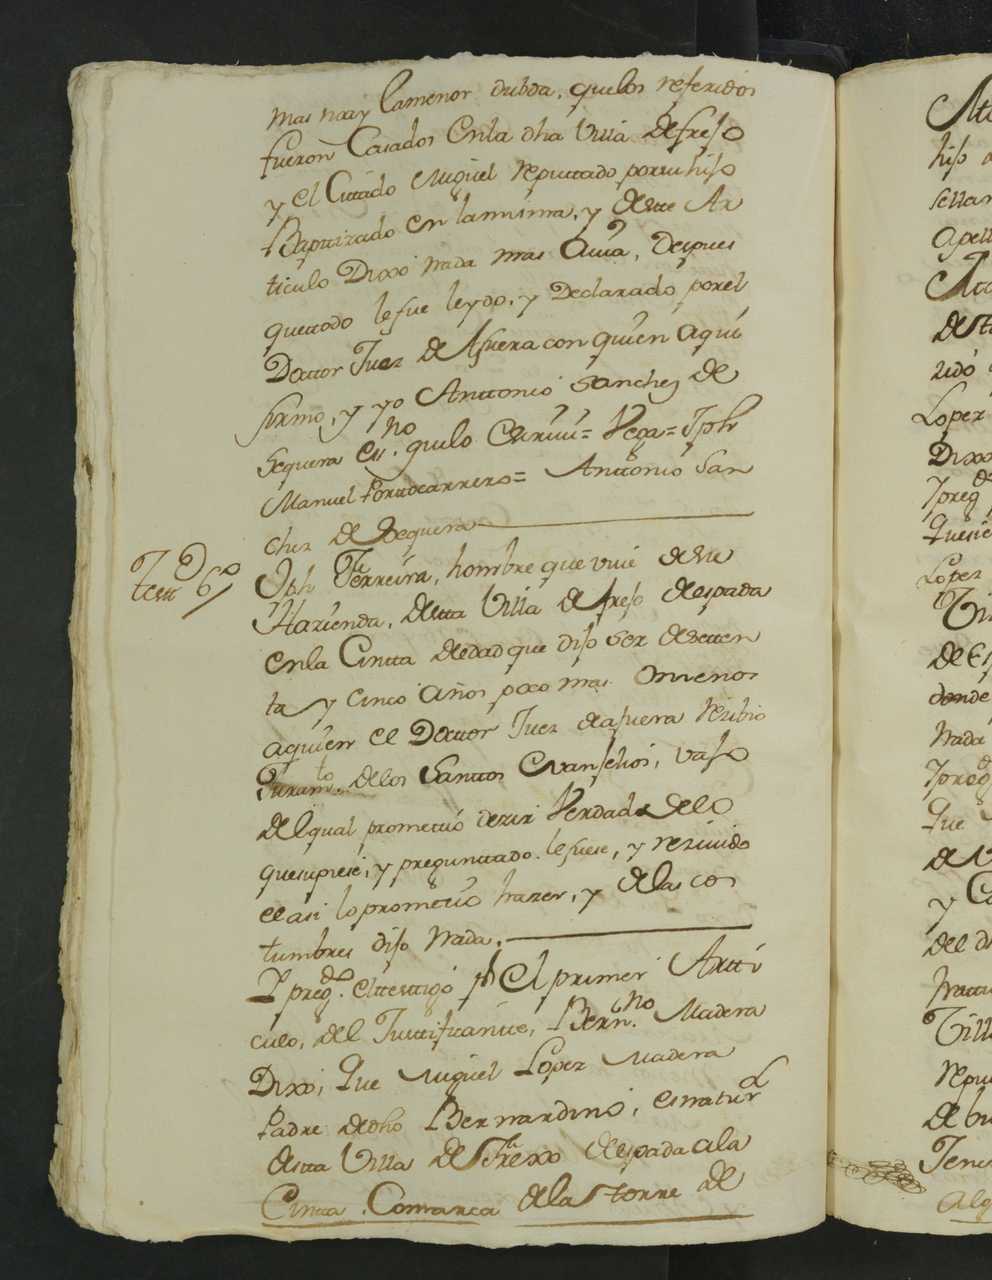 mas nay lamenor dubda, quelos referidos
fueron Casados enla dha Villa defreso
y el Cittado Miguel reputtado porsu hijo
Baptizado en lamisma, y deste Ar
ticulo Dixo nada mas avia, despues
quettodo lefue leydo, y Declarado porel
Doctor Juez deAfuera con quien aqui
firmo, y yo Anttonio Sanchez de
Sequera ess.no quelo escriui = Vega = Jph
Manuel Porttocarrero = Anttonio San
chez de Sequera
Testt 6º
Jph Ferreira, hombre que viue desu
Hazienda, desta Villa defreso deespada
enla Cintta deedad que dijo ser desetten
ta y cinco años poco mas omenos
aquien el Doctor Juez deafuera rezibio
Juram.to delos Santtos evanjelios, vajo
del qual promettio dezir Verdad delo
quesupiese, y preguntado lefuese, y reziuido
elasi lopromettio hazer, y delas cos
tumbres dijo Nada.
Y preg.do elttestigo pr el primer Artti
culo, del Justtificante, Bern.no Madera
Dixo, Que Miguel Lopez Madera
Padre dedho Bernardino, esnatur.l
desta Villa de Frexo deespada ala
Cintta, Comarca delastorre de
Alto
hijo
Apell
Lopez
Dixo
Lopez
de Es
donde
Nada
Que
y
del
Villa
Repu
Tene
Alg